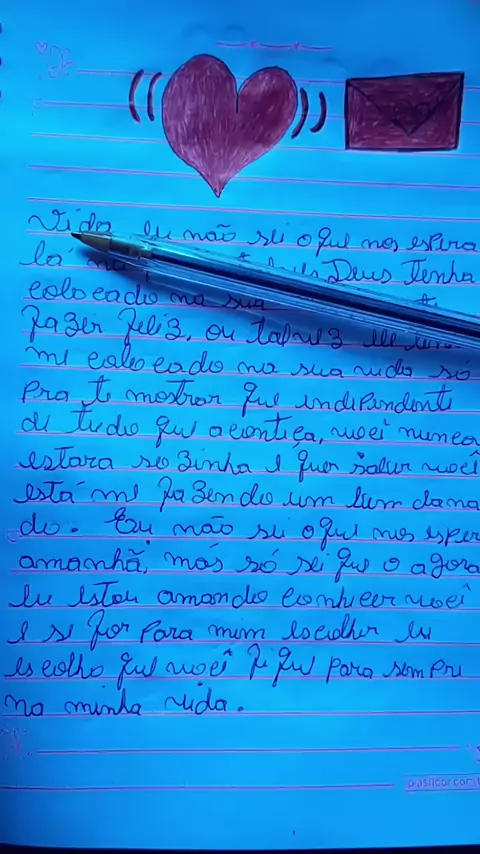 Vida, eu não sei o que nos espera
lá Deus tenha
colocado na sua
fazer feliz, ou talvez ele
me colocado na sua vida só
pra te mostrar que indipendente
de tudo que aconteça, você nunca
estara sozinha e quer saber você
está me fazendo um bem dana
do. Eu não sei o que nos esper
amanhã, más só sei que o agora
eu estou amando conhecer você
e se for para mim escolher eu
escolho que você fique para sempre
na minha vida.
plasilcor.com